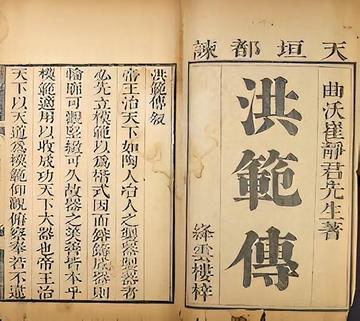 天垣都諫
曲沃崔靜君先生著
洪範傳
絳雲樓梓
洪範傳敘
帝王治天下如陶人冶人之製器製器者
必先立模範以為楷式因而成器則
輪廓可觀堅緻可久故器之美善皆本乎
模範適用以收成功天下大器也帝王治
天下以天道為模範仰觀俯察奉若不違